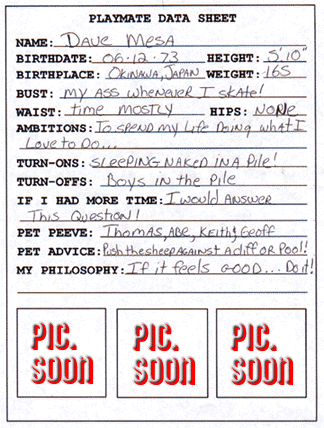 PLAYMATE DATA SHEET
NAME: Dave Mesa
BIRTHDATE: 06·12·73 HEIGHT: 5'10"
BIRTHPLACE: Okinawa, Japan WEIGHT: 165
BUST: my ASS whenever I skate!
WAIST: time mostly HIPS: NONe
AMBITIONS: To spend my Life Doing what I
Love to Do...
TURN-ONS: SLeePING NAKeD IN A Pile!
TURN-OFFS: Boys in the Pile
IF I HAD MORE TIME: I would Answer
This Question!
PET PEEVE: Thomas, Abe, Keith, Geoff
PET ADVICE: Push the sheep against A cliff OR Pool!
MY PHILOSOPHY: If it feels GOOD... Do it!
PIC. SOON
PIC. SOON
PIC. SOON